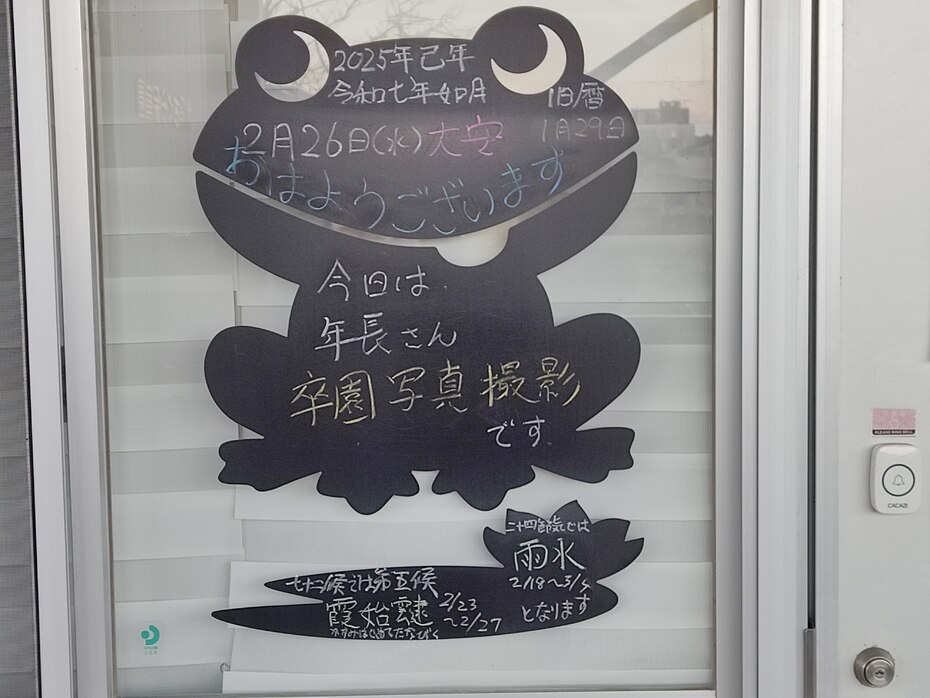 2025年己年
令和七年如月
旧暦
1月29日
2月26日(水)大安
おはようございます
今日は
年長さん
卒園写真撮影
です
二十四節気では
雨水
2/18〜3/4
となります
七十二候では第五候
霞始靆
2/23
〜2/27
かすみはじめてたなびく
PLEASE RING BELL
CACAZI